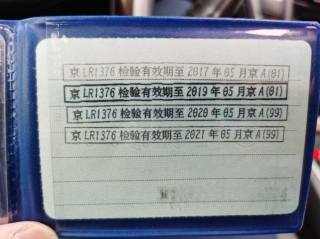 京 LR1376 检验有效期至 2017 年 05 月京 A(01)
京 LR1376 检验有效期至 2019 年 05 月京 A(01)
京 LR1376 检验有效期至 2020 年 05 月京 A(99)
京 LR1376 检验有效期至 2021 年 05 月京 A(99)